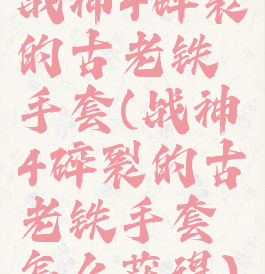 战神4碎裂
的古老铁
手套(战神
4碎裂的古
老铁手套
怎么获得)